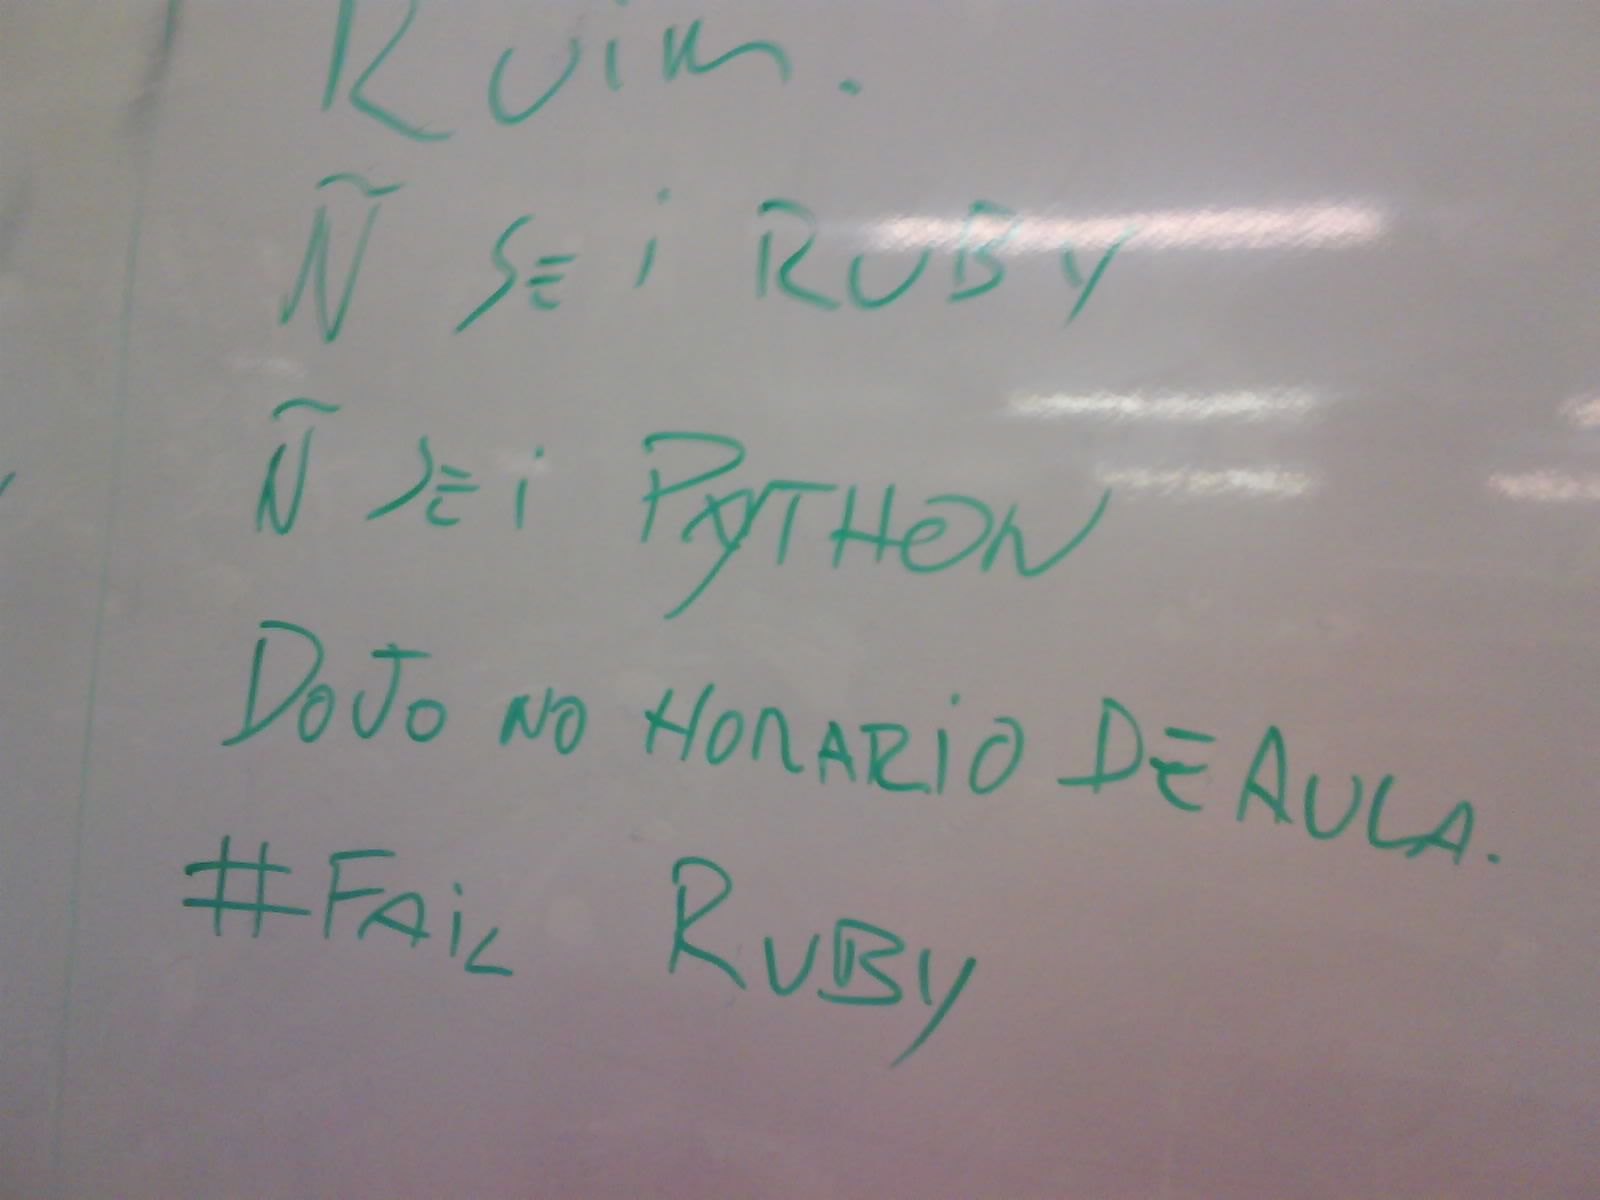 Ruim.
Ñ SEi RUBY
Ñ SEi PYTHON
DOJO NO HORARiO DE AULA.
#FAiL RUBY